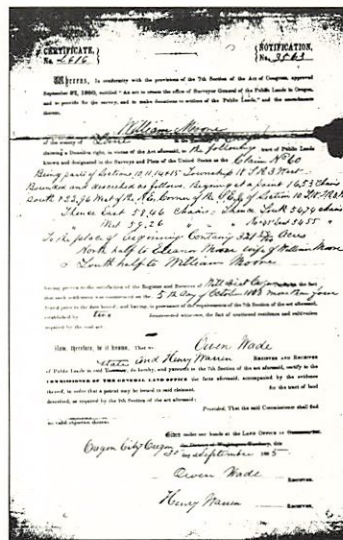 CERTIFICATE,
No. 2616
NOTIFICATION,
No. 3563
Whereas, In conformity with the provisions of the 7th Section of the Act of Congress, approved
September 27, 1850, entitled "An act to create the office of Surveyor General of the Public Lands in Oregon,
and to provide for the survey, and to make donations to settlers of the Public Lands," and the amendments
thereto,
William Moore
of the county of Lane
claiming a Donation right, in virtue of the Act aforesaid, to the following tract of Public Lands
known and designated in the Surveys and Plats of the United States as the Claim No 60
Being parts of Sections 10, 11, 14 & 15 Township 18 S R 3 West
Bounded and described as follows, Beginning at a point 16.53 Chains
South & 22.96 West of the Corner of the of Section 10
Thence East 58.46 Chains; Thence South 54.74 Chains
West 59.26 North East 54.55
To the place of beginning Containing 321 Acres
North half to Eleanor Moore wife of William Moore
& South half to William Moore
having proven to the satisfaction of the Register and Receiver of
that such settlement was commenced on the 5th day of October 1853
filed prior to the date hereof, and having, in pursuance of the requirements of the 7th Section of the Act aforesaid,
established by two disinterested witnesses, the fact of continued residence and cultivation
required by the said act.
Now, therefore, be it known, That we Owen Wade
and Henry Warren Register and Receiver
of Public Lands in said State, do hereby, and pursuant to the 7th Section of the act aforesaid, certify to the
COMMISSIONER OF THE GENERAL LAND OFFICE the facts aforesaid, accompanied by the evidence
thereof, in order that a patent may be issued to said claimant, for the tract of land
described, as required by the 7th Section of the act aforesaid:
Provided, That the said Commissioner shall find
no valid objection thereto.
Given under our hands at the LAND OFFICE
Oregon City Oregon
September
Owen Wade
REGISTER.
Henry Warren
RECEIVER.